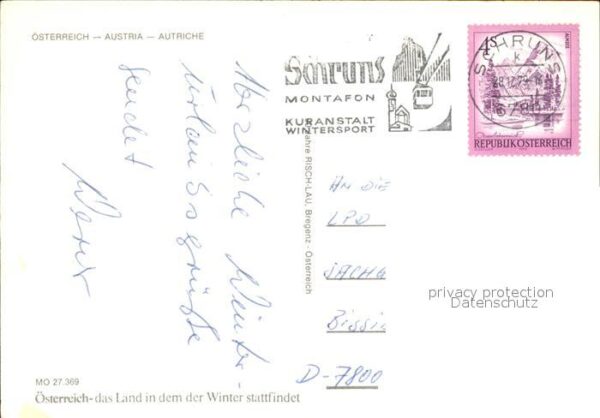 ÖSTERREICH — AUSTRIA — AUTRICHE
Schruns
MONTAFON
KURANSTALT
WINTERSPORT
4s
SCHRUNS
k
6780
REPUBLIK ÖSTERREICH
Herzliche Winter-
urlaubsgrüße
sendet
Jahre RISCH-LAU, Bregenz - Österreich
AN DIE
LPD
privacy protection
Datenschutz
D-7800
MO 27.369
Österreich-das Land in dem der Winter stattfindet